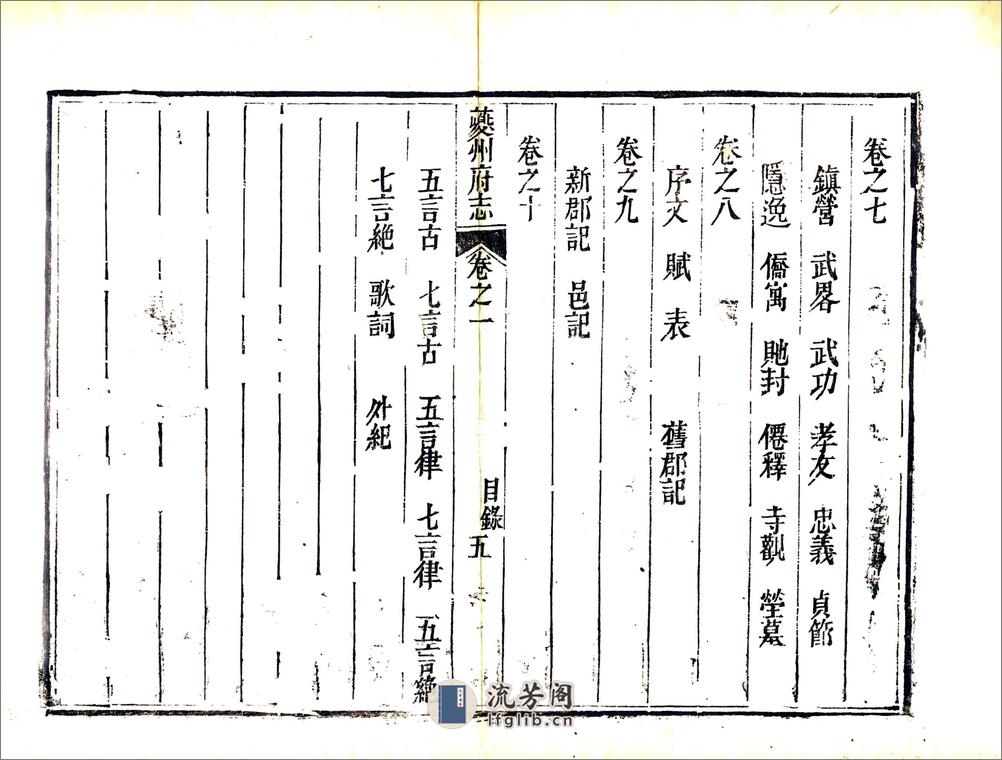 卷之七
鎮營 武畧 武功 孝友 忠義 貞節
隱逸 僑寓 貤封 僊釋 寺觀 塋墓
卷之八
序文 賦 表 舊郡記
卷之九
新郡記 邑記
卷之十
夔州府志 卷之一 目錄 五
五言古 七言古 五言律 七言律 五言絕
七言絕 歌詞 外紀
流芳阁
lfglib.cn